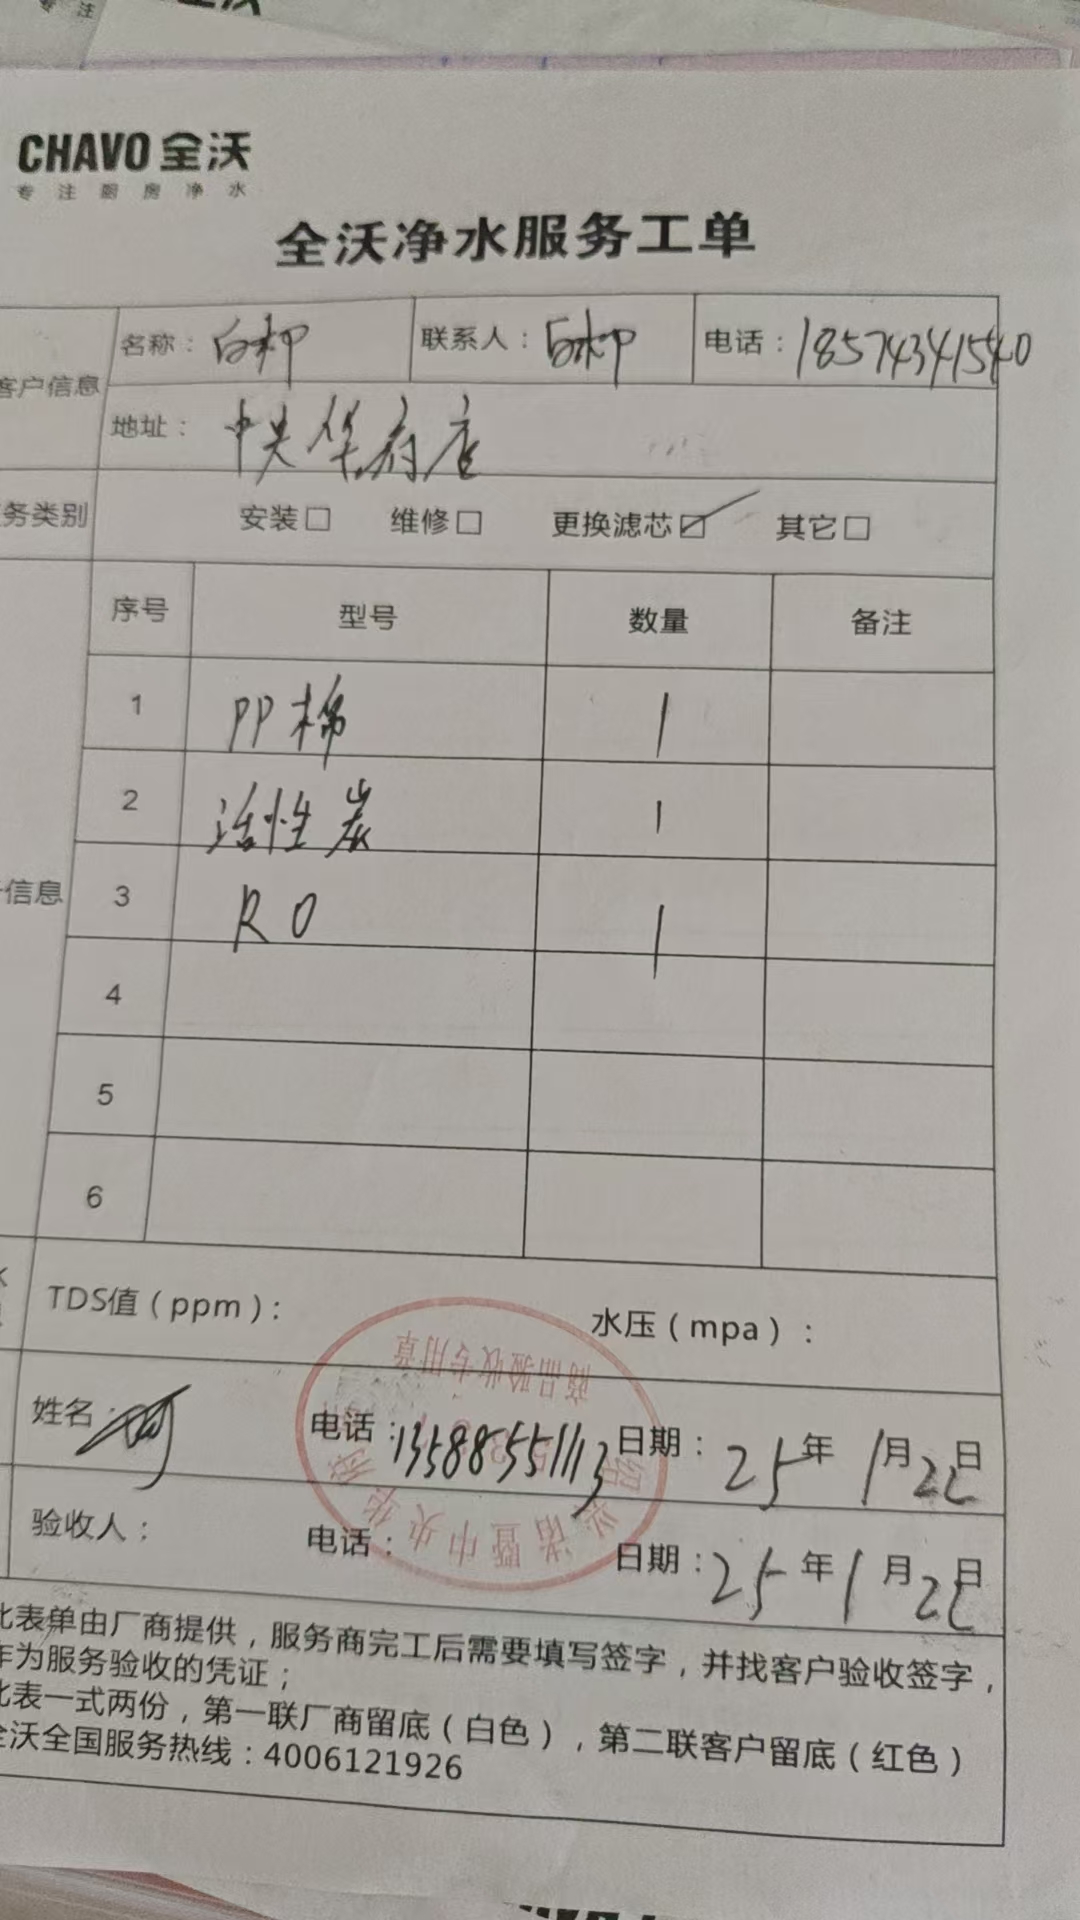 CHAVO 全沃
专注厨房净水
全沃净水服务工单
客户信息
名称： 联系人： 电话：18574341540
地址： 中央华府店
务类别 安装□ 维修□ 更换滤芯☑ 其它□
序号 型号 数量 备注
1 PP棉 1
2 活性炭 1
信息
3 RO 1
4
5
6
TDS值（ppm）： 水压（mpa）：
姓名： 电话：13588551113 日期：25年1月2日
验收人： 电话： 日期：25年1月2日
商品验收专用章
诸暨中央华
此表单由厂商提供，服务商完工后需要填写签字，并找客户验收签字，
作为服务验收的凭证；
此表一式两份，第一联厂商留底（白色），第二联客户留底（红色）
全沃全国服务热线：4006121926